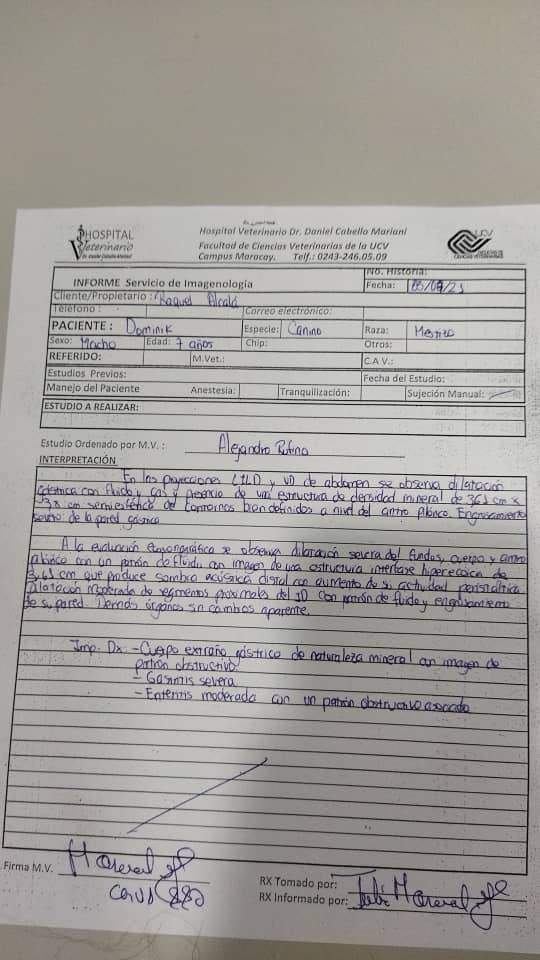 HOSPITAL
Veterinario
Dr. Daniel Cabello Mariani
Hospital Veterinario Dr. Daniel Cabello Mariani
Facultad de Ciencias Veterinarias de la UCV
Campus Maracay. Telf.: 0243-246.05.09
UCV
FACULTAD DE
CIENCIAS VETERINARIAS
No. Historia:
INFORME Servicio de Imagenología Fecha:
Cliente/Propietario : Raquel Alcalá
Teléfono : Correo electrónico:
PACIENTE : Dominik Especie: Canino Raza: Mestizo
Sexo: Macho Edad: 7 años Chip: Otros:
REFERIDO: M.Vet.: C.A.V.:
Estudios Previos: Fecha del Estudio:
Manejo del Paciente Anestesia: Tranquilización: Sujeción Manual:
ESTUDIO A REALIZAR:
Estudio Ordenado por M.V. : Alejandro
INTERPRETACIÓN
En las proyecciones LILD y VD de abdomen se observa dilatación
gástrica con fluido y gas y presencia de una estructura de densidad mineral de 3,61 cm x
cm semiesférica de contornos bien definidos a nivel del antro pilórico. Engrosamiento
severo de la pared gástrica
A la evaluación ecosonográfica se observa dilatación severa del fundus, cuerpo y antro
pilórico con un patrón de fluido con imagen de una estructura interfase hiperecoica de
3,45 cm que produce sombra acústica distal con aumento de su actividad peristáltica
Dilatación moderada de segmentos proximales del ID con patrón de fluido y engrosamiento
de su pared. Demás órganos sin cambios aparente.
Imp. Dx: - Cuerpo extraño gástrico de naturaleza mineral con imagen de
patrón obstructivo.
- Gastritis severa
- Enteritis moderada con un patrón obstructivo asociado
Firma M.V.
RX Tomado por:
RX Informado por: